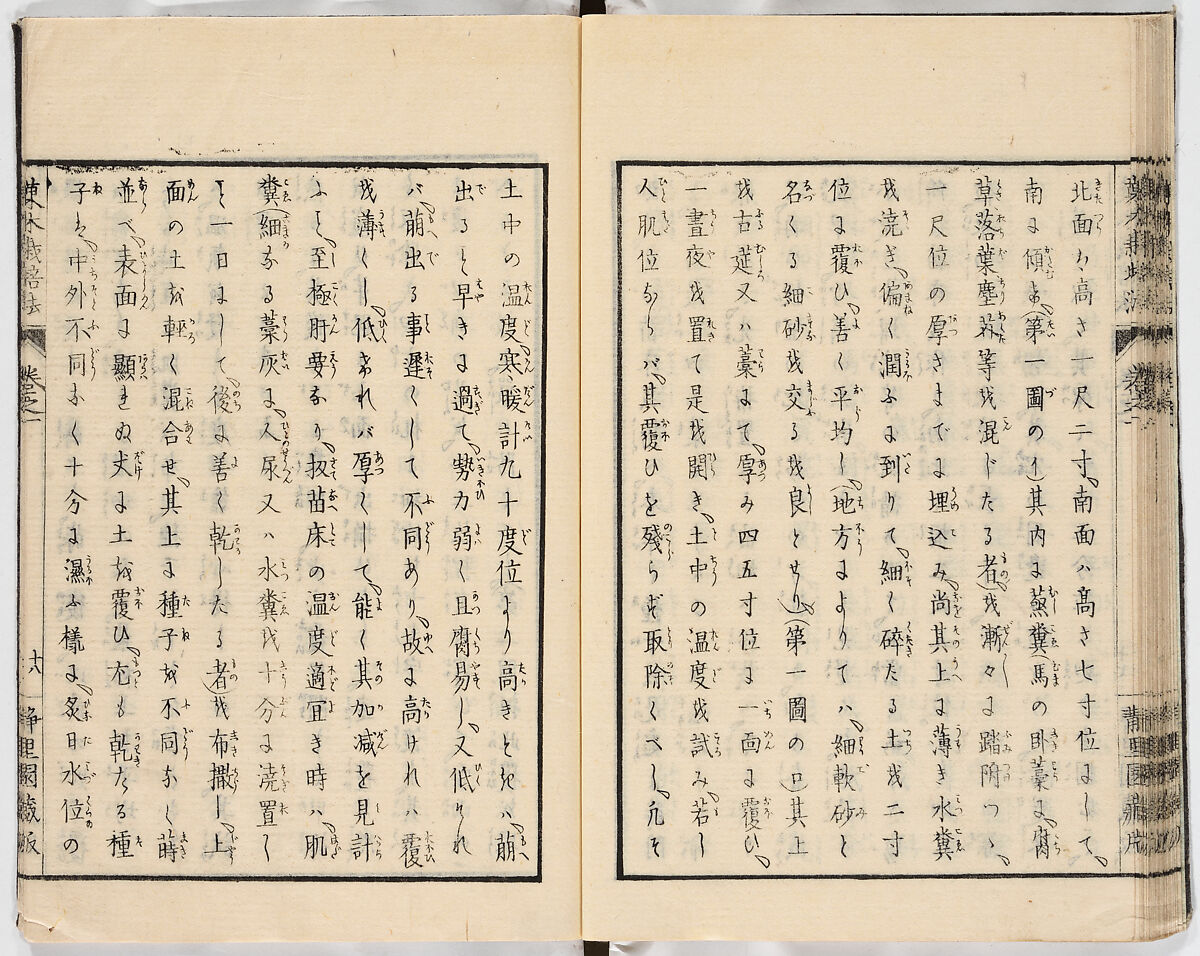 北面ハ高さ一尺二寸、南面ハ高さ七寸位にして、
南に傾き(第一圖のイ)其内に蒸糞(馬の卧藁)に、腐
草落葉塵芥等を混じたる者、を漸々に踏附つゝ、
一尺位の厚さまでに埋込み、尚其上に薄き水糞
を澆ぎ、偏く潤ふに到りて、細く碎たる土を二寸
位に覆ひ、善く平均し(地方によりてハ、細軟砂と
名くる細砂を交るを良とせり)(第一圖のロ)其上
を古莚又ハ藁にて、厚み四五寸位に一面に覆ひ、
一晝夜を置て是を開き、土中の温度を試み、若し
人肌位ならバ、其覆ひを殘らず取除くべし、凡そ
土中の温度、寒暖計九十度位より高きときハ、萠
出ること早きに過て、勢力弱く且腐易し、又低けれ
バ、萠出る事遲くして不同あり、故に高ければ覆
を薄くし、低ければ厚くして、能く其加減を見計
ふこと、至極肝要なり、扨苗床の温度適宜き時ハ、肌
糞(細なる藁灰に、人尿又ハ水糞を十分に澆置し
こと一日にして、後に善く乾したる者)を布撒し、上
面の土を輕く混合せ、其上に種子を不同なく蒔
並べ、表面に顯れぬ丈に土を覆ひ、尤も乾たる種
子は、中外不同なく十分に濕ふ樣に、炙日水位の
栽培法
卷之一
十八
静里園藏版